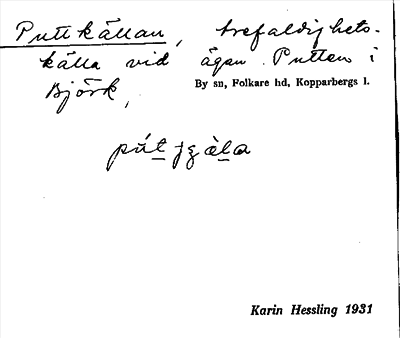 Puttkällan, trefaldighets-
källa vid ägan Putten i
Björk,
By sn, Folkare hd, Kopparbergs l.
Karin Hessling 1931